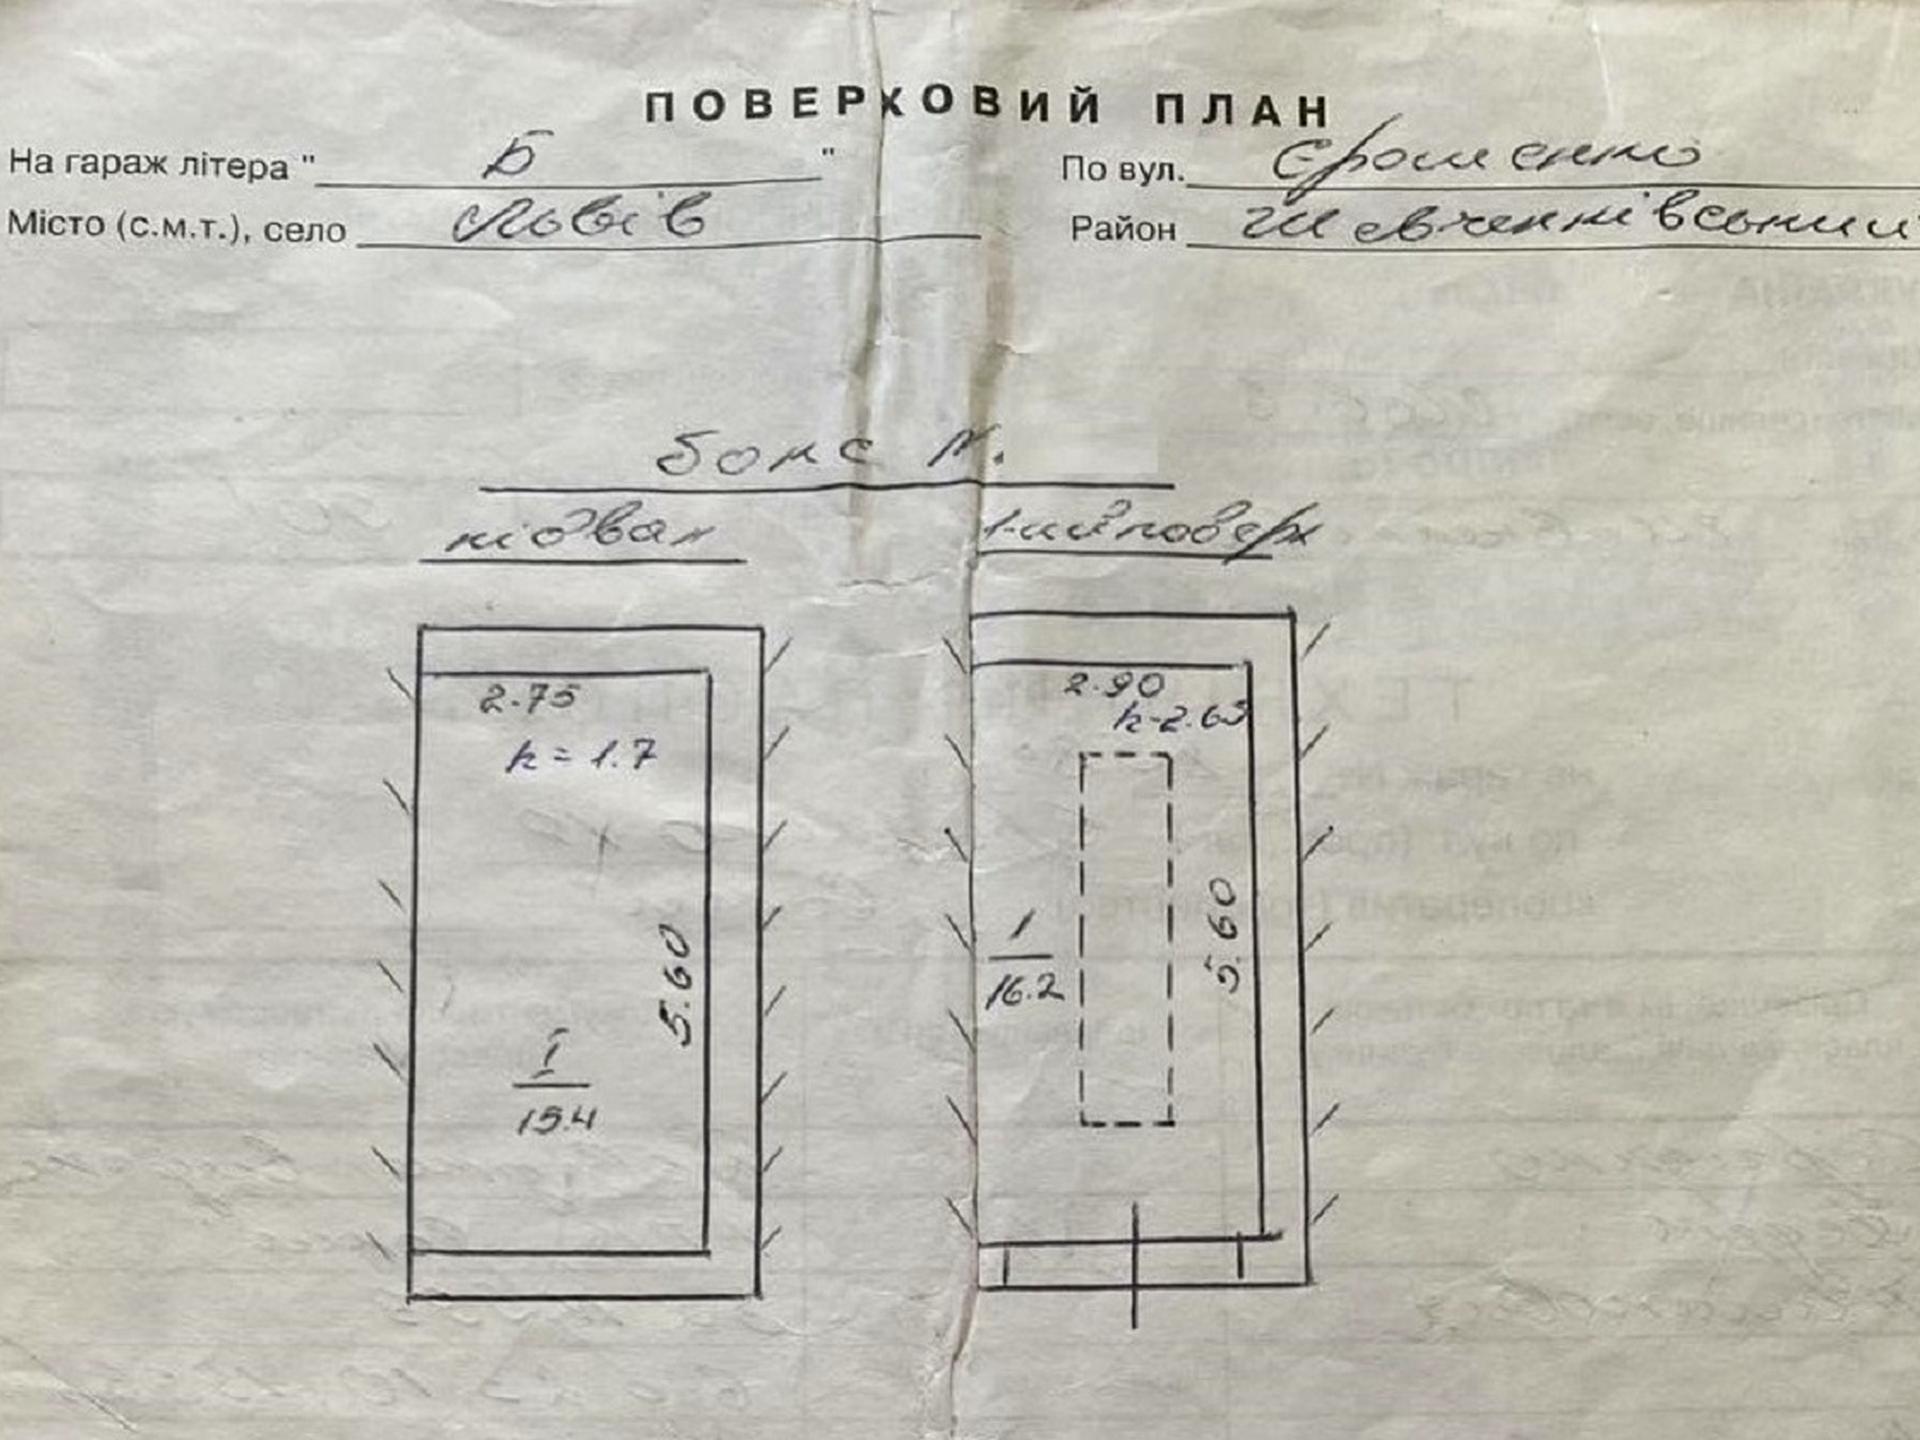 ПОВЕРХОВИЙ ПЛАН
На гараж літера " Б "
По вул. Єрошенко
Місто (с.м.т.), село Львів
Район Шевченківський
бокс №.
підвал
1-ий поверх
2.75
h = 1.7
5.60
I
15.4
2.90
h-2.63
1
16.2
5.60